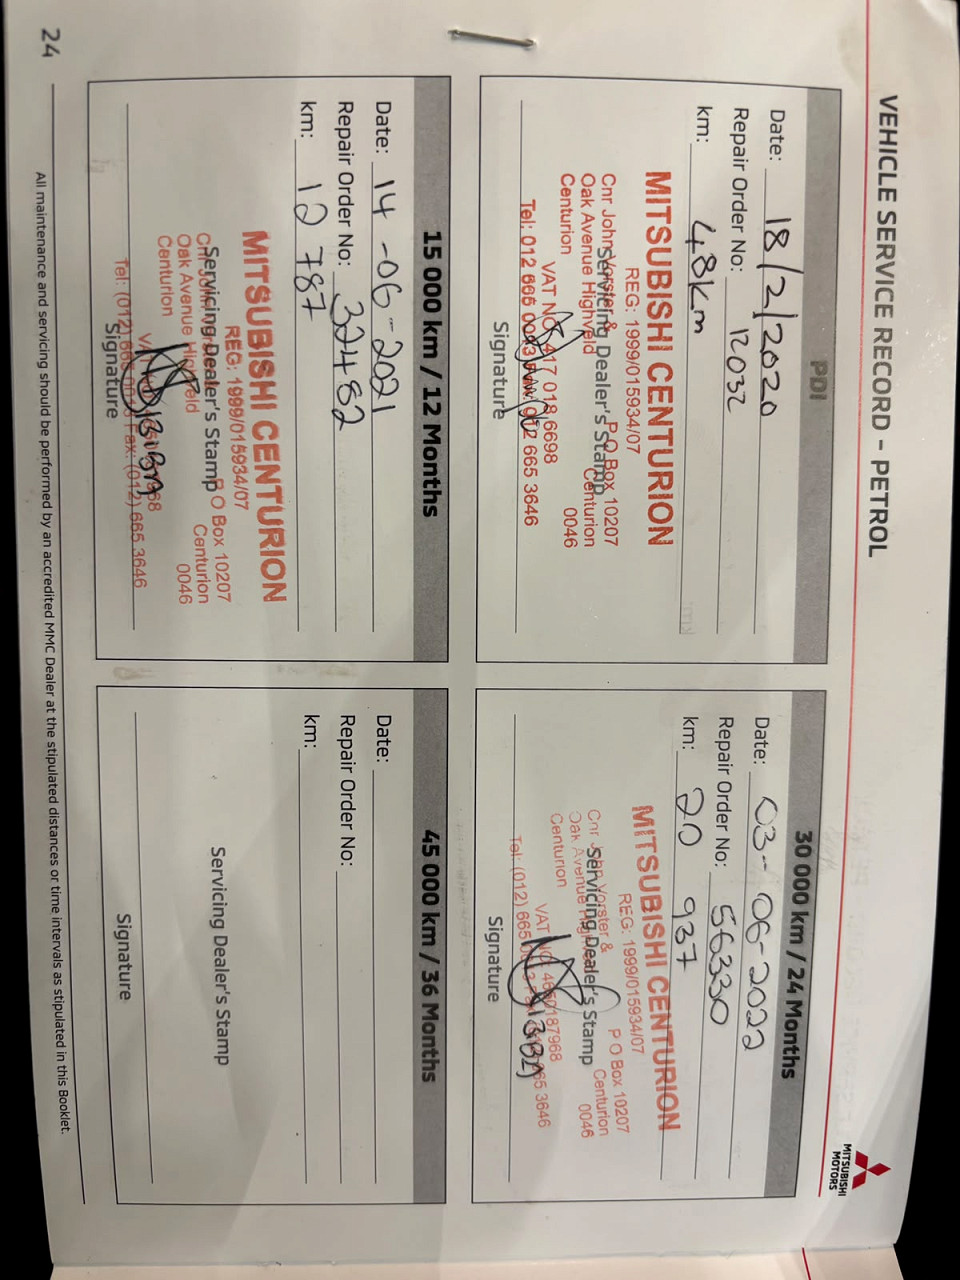 VEHICLE SERVICE RECORD - PETROL
MITSUBISHI
MOTORS
PDI
Date: 18/2/2020
Repair Order No: 12032
km: 48km
MITSUBISHI CENTURION
REG: 1999/015934/07
Cnr John Vorster & P O Box 10207
Oak Avenue Highveld Centurion
Centurion 0046
Servicing Dealer's Stamp
VAT NO
Signature
30 000 km / 24 Months
Date: 03-06-2022
Repair Order No: 56330
km: 20 937
MITSUBISHI CENTURION
REG: 1999/015934/07
Cnr John Vorster & P O Box 10207
Oak Avenue Centurion
Centurion 0046
Servicing Dealer's Stamp
VAT NO
Tel: (012) 665
Signature
15 000 km / 12 Months
Date: 14-06-2021
Repair Order No: 32482
km: 12 787
MITSUBISHI CENTURION
REG: 1999/015934/07
P O Box 10207
Oak Avenue Highveld Centurion
Centurion 0046
Servicing Dealer's Stamp
Tel: (012) 665 Fax: (012) 665 3646
Signature
45 000 km / 36 Months
Date:
Repair Order No:
km:
Servicing Dealer's Stamp
Signature
All maintenance and servicing should be performed by an accredited MMC Dealer at the stipulated distances or time intervals as stipulated in this Booklet.
24